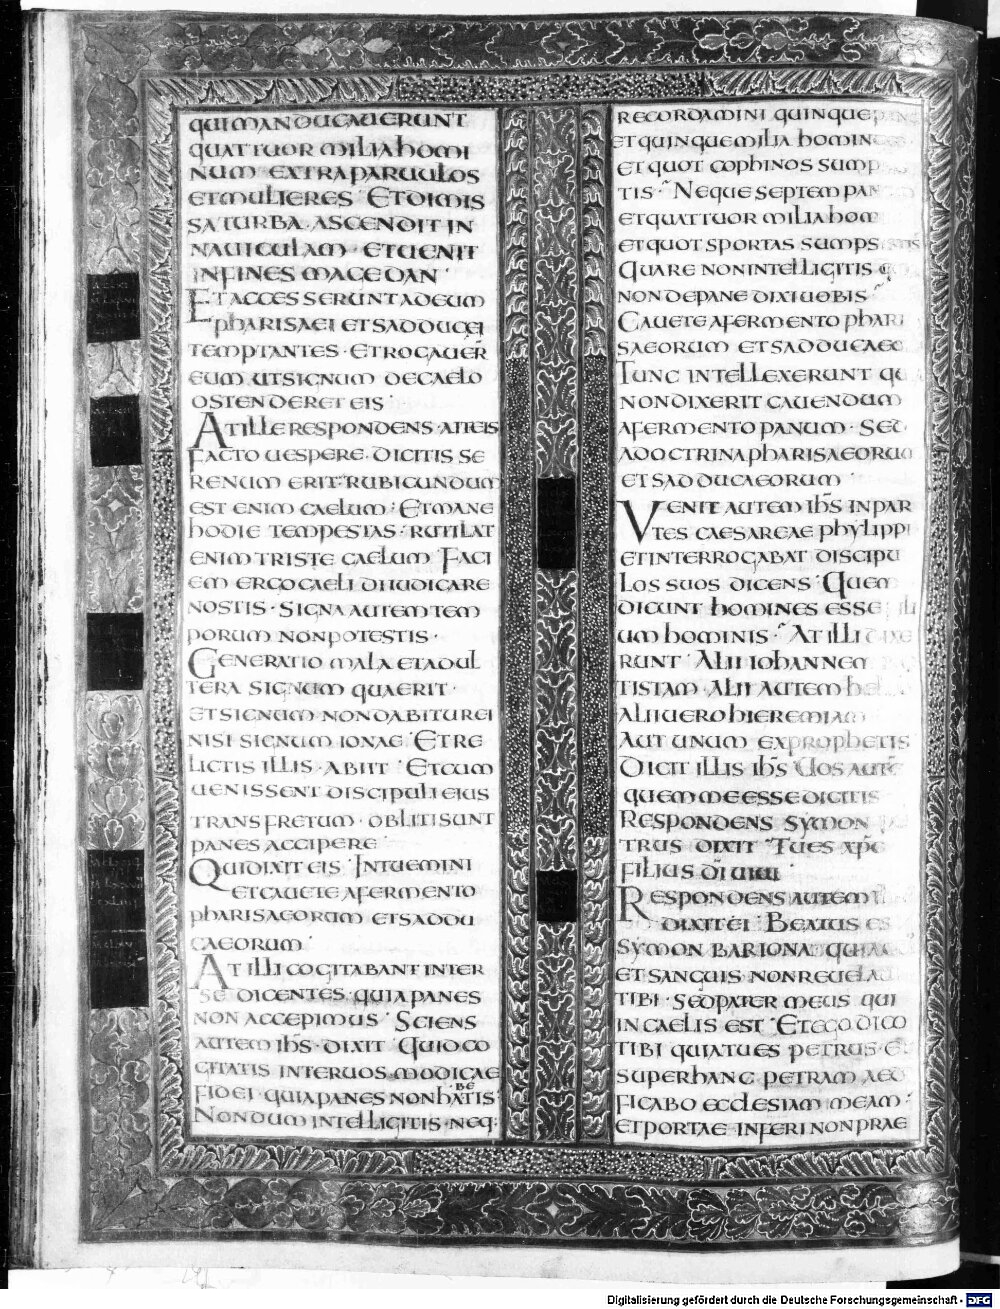 QUI MANDUCAVERUNT
QUATTUOR MILIA HOMI
NUM EXTRA PARVULOS
ET MULIERES · ET DIMIS
SA TURBA · ASCENDIT IN
NAVICULAM · ET VENIT
IN FINES MAGEDAN ·
ET ACCESSERUNT AD EUM
PHARISAEI ET SADDUCEI
TEMPTANTES · ET ROGAVER̄
EUM UT SIGNUM DE CAELO
OSTENDERET EIS ·
AT ILLE RESPONDENS · AIT EIS
FACTO VESPERE · DICITIS SE
RENUM ERIT · RUBICUNDUM
EST ENIM CAELUM · ET MANE
HODIE TEMPESTAS · RUTILAT
ENIM TRISTE CAELUM · FACI
EM ERGO CAELI DIIUDICARE
NOSTIS · SIGNA AUTEM TEM
PORUM NON POTESTIS ·
GENERATIO MALA ET ADUL
TERA SIGNUM QUAERIT ·
ET SIGNUM NON DABITUR EI
NISI SIGNUM IONAE · ET RE
LICTIS ILLIS · ABIIT · ET CUM
VENISSENT DISCIPULI EIUS
TRANS FRETUM · OBLITI SUNT
PANES ACCIPERE ·
QUI DIXIT EIS · INTUEMINI
ET CAVETE A FERMENTO
PHARISAEORUM ET SADDU
CAEORUM ·
AT ILLI COGITABANT INTER
SE DICENTES · QUIA PANES
NON ACCEPIMUS · SCIENS
AUTEM IH̄S · DIXIT · QUID CO
GITATIS INTER VOS MODICAE
FIDEI QUIA PANES NON HABETIS
NONDUM INTELLIGITIS · NEQ·
RECORDAMINI QUINQUE
ET QUINQUE MILIA HOMIN
ET QUOT COPHINOS SUMP
TIS · NEQUE SEPTEM PAN
ET QUATTUOR MILIA HOM
ET QUOT SPORTAS SUMPS
QUARE NON INTELLIGITIS
NON DE PANE DIXI VOBIS
CAVETE A FERMENTO PHARI
SAEORUM ET SADDUCAEO
TUNC INTELLEXERUNT QU
NON DIXERIT CAVENDUM
A FERMENTO PANUM · SED
A DOCTRINA PHARISAEORUM
ET SADDUCAEORUM ·
VENIT AUTEM IH̄S IN PAR
TES CAESAREAE PHYLIPPI
ET INTERROGABAT DISCIPU
LOS SUOS DICENS · QUEM
DICUNT HOMINES ESSE
UM HOMINIS · AT ILLI DIXE
RUNT · ALII IOHANNEM
TISTAM · ALII AUTEM
ALII VERO HIEREMIAM
AUT UNUM EX PROPHETIS
DICIT ILLIS IH̄S VOS AUTĒ
QUEM ME ESSE DICITIS
RESPONDENS SYMON
TRUS DIXIT · TU ES XP̄C
FILIUS DĪ VIVI
RESPONDENS AUTEM
DIXIT EI · BEATUS ES
SYMON BARIONA · QUIA
ET SANGUIS NON REVELA
TIBI · SED PATER MEUS QUI
IN CAELIS EST · ET EGO DICO
TIBI QUIA TU ES PETRUS · E
SUPER HANC PETRAM AED
FICABO ECCLESIAM MEAM ·
ET PORTAE INFERI NON PRAE
Digitalisierung gefördert durch die Deutsche Forschungsgemeinschaft - DFG